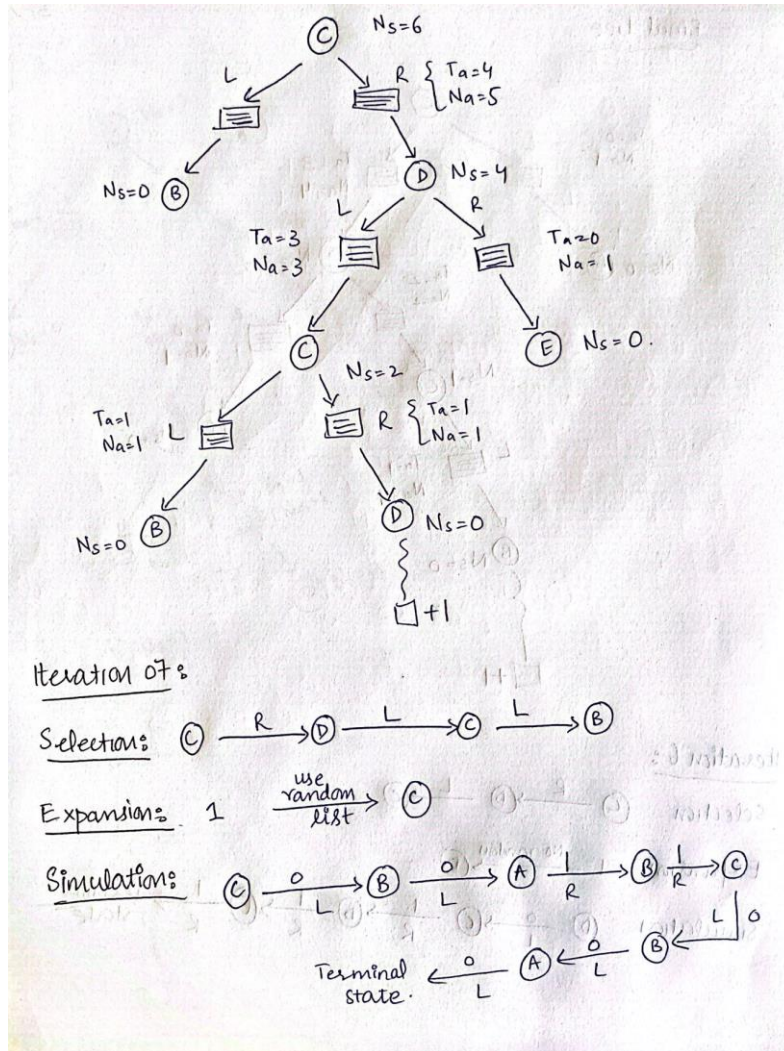 C Ns=6
L R Ta=4
Na=5
Ns=0 B D Ns=4
L R
Ta=3 Ta=0
Na=3 Na=1
C E Ns=0.
Ns=2
Ta=1 L R Ta=1
Na=1 Na=1
B D
Ns=0 Ns=0
+1
Iteration 07:
Selection: C R D L C L B
Expansion: 1 use random list C
Simulation: C 0 L B 0 L A 1 R B 1 R C
L 0
Terminal state. 0 L A 0 L B